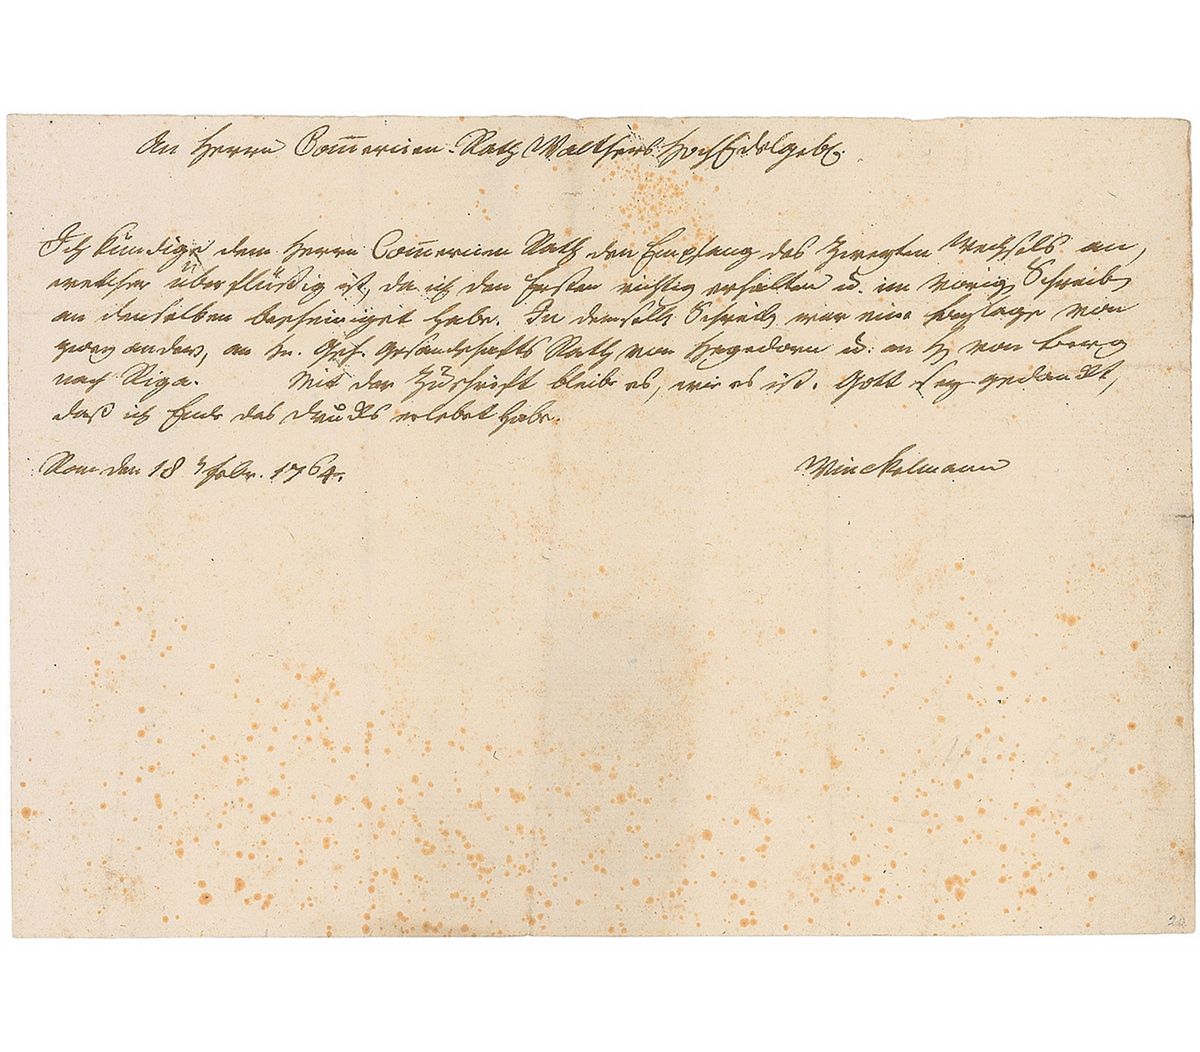 An Herrn Com̄ercien-Rath Walthers HochEdelgeb.
Ich kündige dem Herrn Com̄ercien Rath den Empfang des Zweyten Wechsels an,
welcher überflüßig ist, da ich den Ersten richtig erhalten u. im vorig. Schreib.
an denselben bescheiniget habe. In demselb. Schreib. war eine Beylage von
zwey andern, an Hn. Geh. Gesandschafts Rath von Hagedorn u. an H. von Berg
nach Riga. Mit der Zuschrift bleib es, wie es ist. Gott sey gedankt,
daß ich Ende des Drucks erlebet habe.
Rom den 18 Febr. 1764. Winckelmann